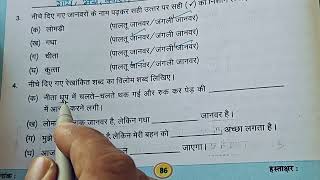 3. नीचे दिए गए जानवरों के नाम पढ़कर सही उत्तर पर सही (✓) का निशान
(क) लोमड़ी (पालतू जानवर/जंगली जानवर)
(ख) गधा (पालतू जानवर/जंगली जानवर)
(ग) चीता (पालतू जानवर/जंगली जानवर)
(घ) कुत्ता (पालतू जानवर/जंगली जानवर)
4. नीचे दिए गए रेखांकित शब्द का विलोम शब्द लिखिए।
(क) नीता धूप में चलते-चलते थक गई और रुक कर पेड़ की
में करने लगी।
(ख) जानवर है, लेकिन गधा जानवर है।
(ग) है, लेकिन मेरी बहन को अच्छा लगता है।
(घ) आज
86
हस्ताक्षर :